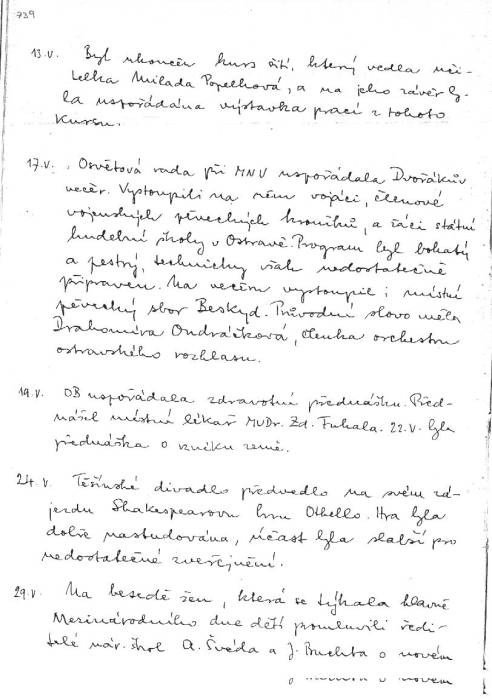 739
13.V. Byl ukončen kurs šití, který vedla uči-
telka Milada Popelková, a na jeho závěr by-
la uspořádána výstavka prací z tohoto
kursu.
17.V. Osvětová rada při MNV uspořádala Dvořákův
večer. Vystoupili na něm vojáci, členové
vojenských pěveckých kroužků, a žáci státní
hudební školy v Ostravě. Program byl bohatý
a pestrý, technicky však nedostatečně
připraven. Na večeru vystoupil i místní
pěvecký sbor Beskyd. Průvodní slovo měla
Drahomíra Ondráčková, členka orchestru
ostravského rozhlasu.
19.V. OB uspořádala zdravotní přednášku. Před-
nášel místní lékař MUDr. Zd. Fukala. 22.V. byla
přednáška o vzniku země.
24.V. Těšínské divadlo předvedlo na svém zá-
jezdu Shakespearovu hru Othello. Hra byla
dobře nastudována, účast byla slabší pro
nedostatečné zveřejnění.
29.V. Na besedě žen, která se týkala hlavně
Mezinárodního dne dětí promluvili ředi-
telé nár. škol A. Švéda a J. Buchta o novém